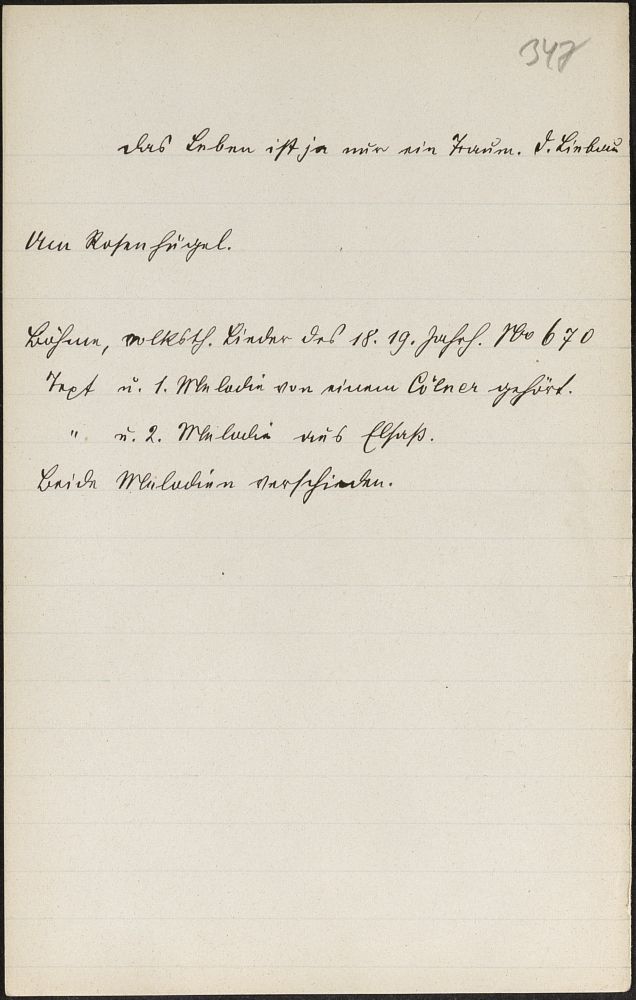 347
Das Leben ist ja nur ein Traum. d. Liebau
Am Rosenhügel.
Böhme, volksth. Lieder des 18. 19. Jahrh. No 670
Text u. 1. Melodie von einem Cölner gehört.
" u. 2. Melodie aus Elsaß.
Beide Melodien verschieden.